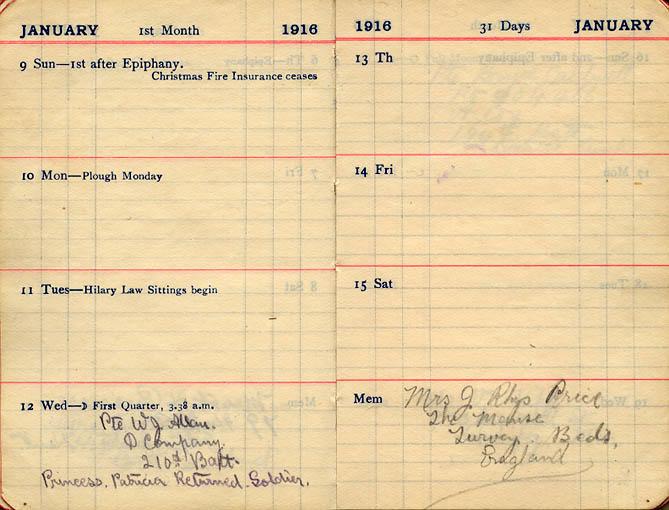 JANUARY 1st Month 1916
9 Sun—1st after Epiphany.
Christmas Fire Insurance ceases
10 Mon—Plough Monday
11 Tues—Hilary Law Sittings begin
12 Wed—☽ First Quarter, 3.38 a.m.
Pte W J Allan.
D Company.
210th Batt.
Princess. Patricia Returned. Soldier.
1916 31 Days JANUARY
13 Th
14 Fri
15 Sat
Mem Mrs J. Rhys Price
The Manse
Turvey. Beds,
England